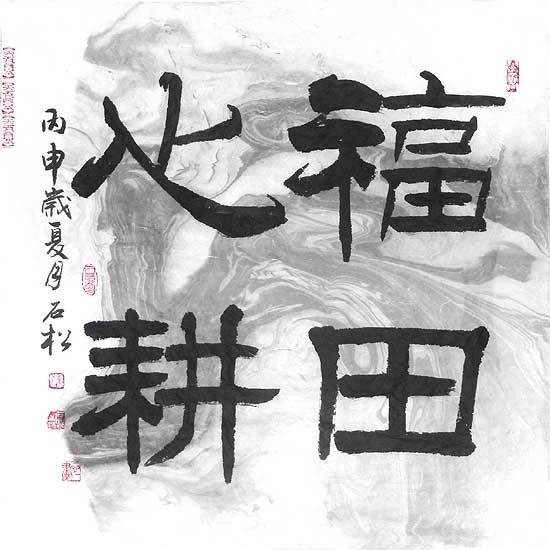 福田
心耕
丙申歲夏月石松